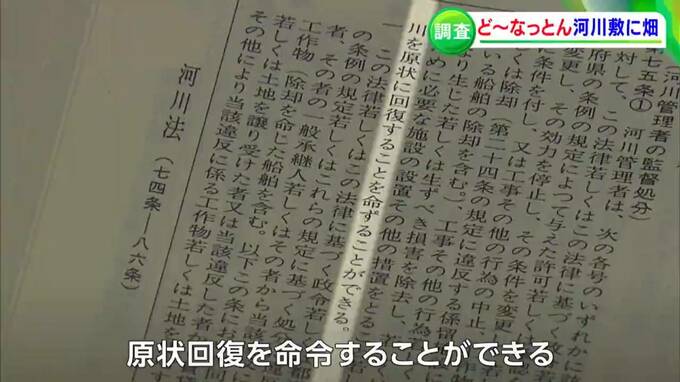 調査 ど〜なっとん河川敷に畑
(河川管理者の監督処分)
第七五条① 河川管理者は、次の各号のいずれかに
対して、この法律若しくはこの法律に基づく
府県の条例の規定によつて与えた許可若しく
変更し、その効力を停止し、その条件を変更
に条件を付し、又は工事その他の行為の中止、
くは除却(第二十四条の規定に違反する係留
いる船舶の除却を含む。)、工事その他の行為に
より生じた若しくは生ずべき損害を除去し、
めに必要な施設の設置その他の措置をとる
川を原状に回復することを命ずることができる。
一 この法律若しくはこの法律に基づく政令若し
の条例の規定若しくはこれらの規定に基づく処分
者、その者の一般承継人若しくはその者から当該
工作物(除却を命じた船舶を含む。以下この条にお
若しくは土地を譲り受けた者又は当該違反した者
その他により当該違反に係る工作物若しくは土地を
河川法(七四条—八六条)
原状回復を命令することができる